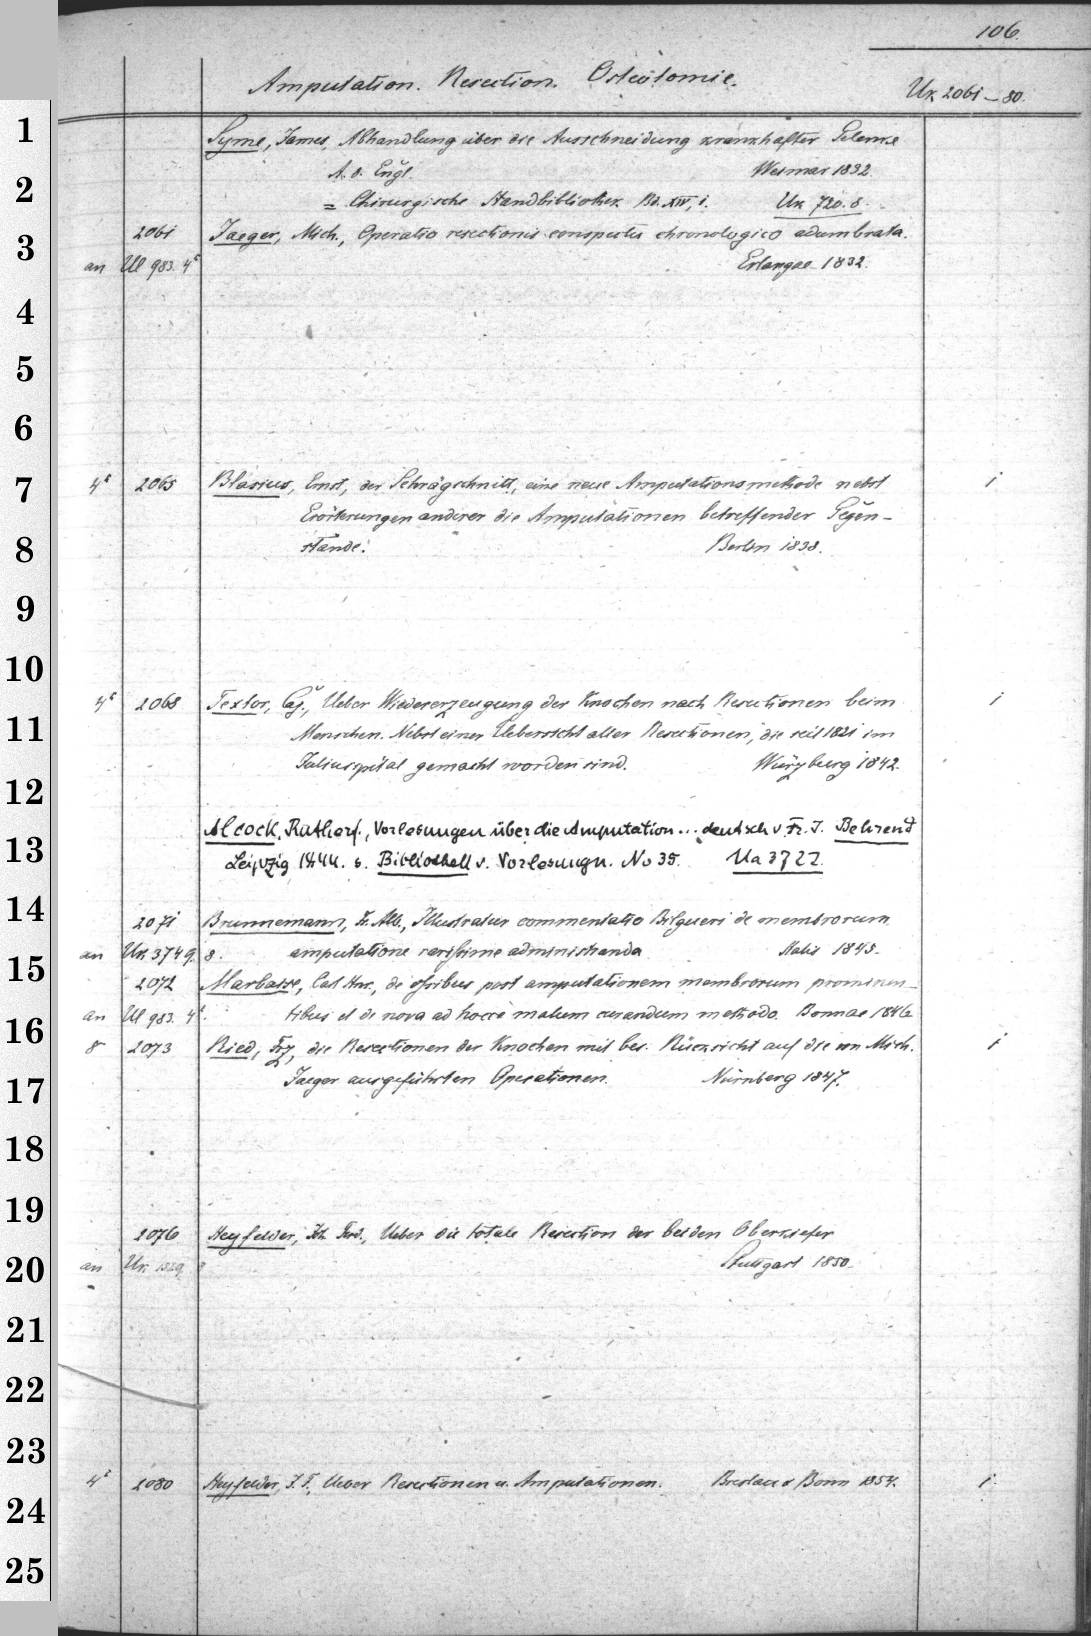 106.
Amputation. Resection. Osteotomie.
Uk 2061-80.
1
2
3
4
5
6
7
8
9
10
11
12
13
14
15
16
17
18
19
20
21
22
23
24
25
Syme, James, Abhandlung über die Ausschneidung krankhafter Gelenke
A. d. Engl. Weimar 1832.
= Chirurgische Handbibliothek Bd. XIV, 1. Uk 720. 8.
2061 Jaeger, Mich., Operatio resectionis conspectu chronologico adumbrata.
an Ul 983. 4° Erlangae 1832.
4° 2065 Blasius, Ernst, der Schrägschnitt, eine neue Amputationsmethode nebst 1
Erörterungen anderer die Amputationen betreffender Gegen-
stände. Berlin 1838.
4° 2068 Textor, Caj., Ueber Wiedererzeugung der Knochen nach Resectionen beim 1
Menschen. Nebst einer Uebersicht aller Resectionen, die seit 1821 im
Juliusspital gemacht worden sind. Würzburg 1842.
Alcock, Rutherf., Vorlesungen über die Amputation... deutsch v. Fr. J. Behrend
Leipzig 1844. s. Bibliothek v. Vorlesungn. No 35. Ua 3722.
2071 Brunnemann, Fr. Alb., Illustratur commentatio Bilgueri de membrorum
an Uk 3749. 8. amputatione rarissime administranda Halis 1845.
2072 Marbasse, Carl Henr., de ossibus post amputationem membrorum prominen-
an Ul 983. 4°. tibus et de nova ad hocce malum curandum methodo. Bonnae 1846
8 2073 Ried, Frz, die Resectionen der Knochen mit bes. Rücksicht auf die von Mich. 1
Jaeger ausgeführten Operationen. Nürnberg 1847.
2076 Heyfelder, Joh. Ferd., Ueber die totale Resection der beiden Oberkiefer
an Uk 1529. 8 Stuttgart 1850.
4° 2080 Heyfelder, J. F., Ueber Resectionen u. Amputationen. Breslau u Bonn 1854. 1